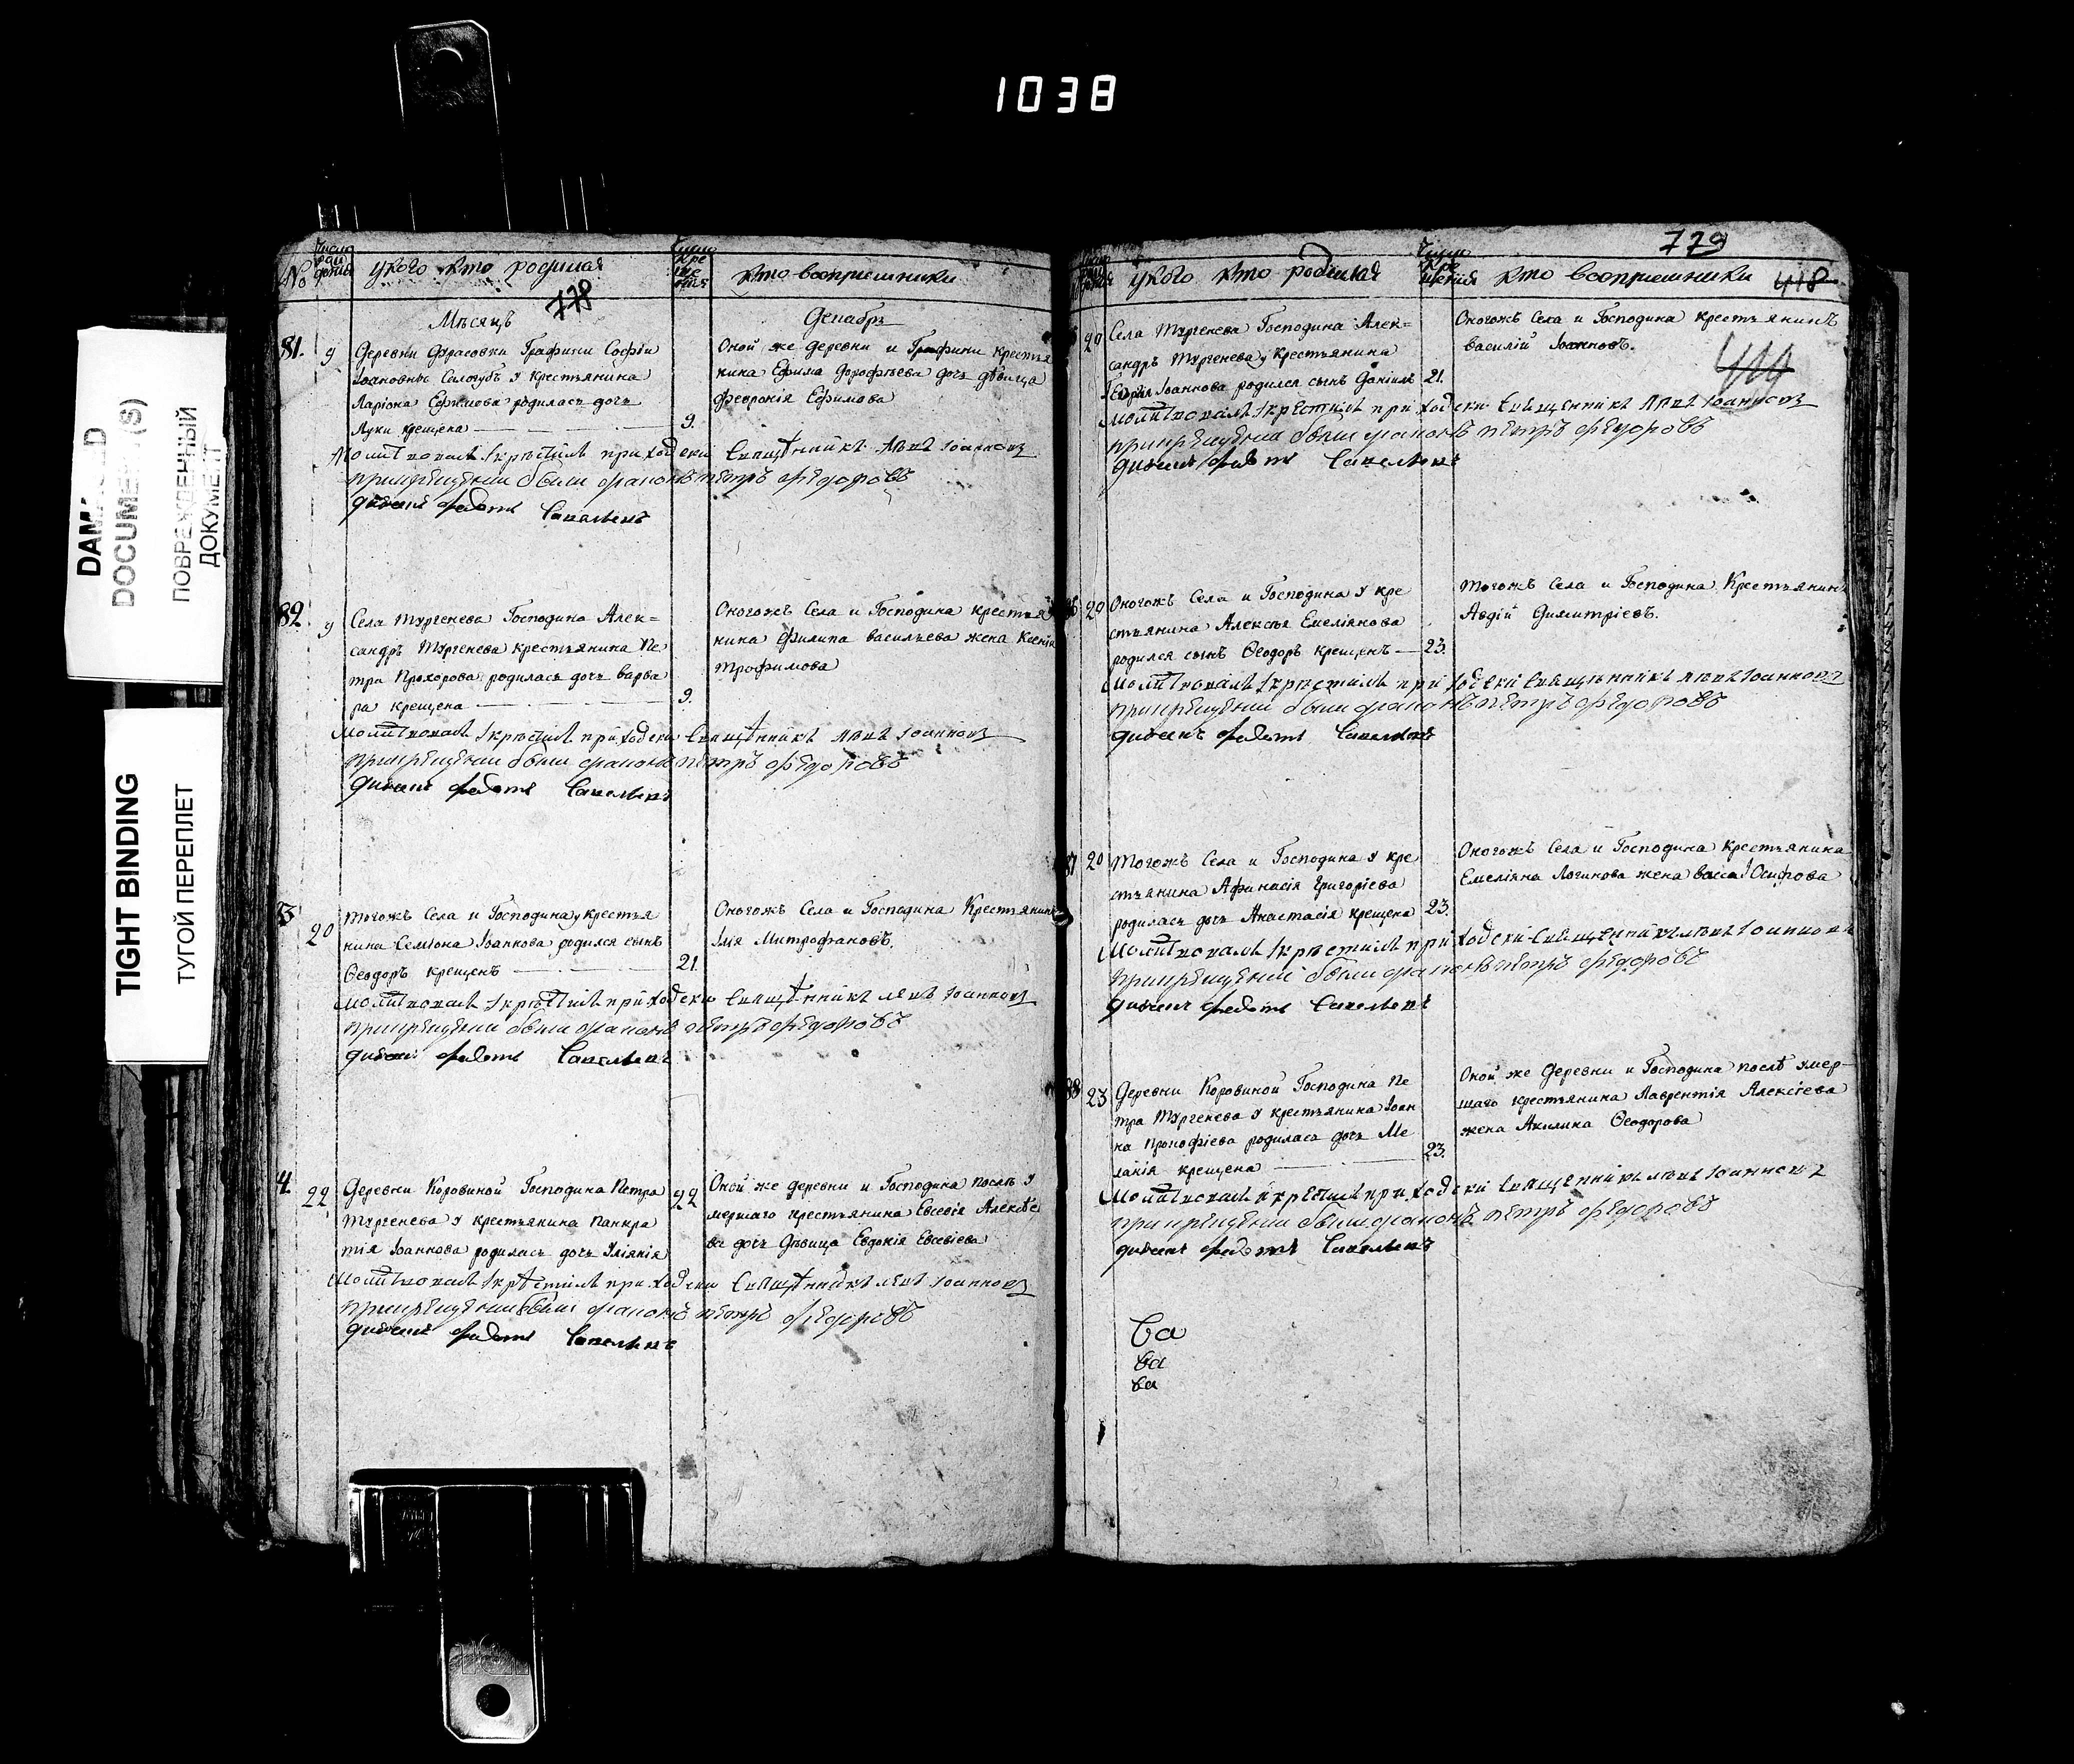 1038
DAMAGED
DOCUMENT(S)
ПОВРЕЖДЕННЫЙ
ДОКУМЕНТ
TIGHT BINDING
ТУГОЙ ПЕРЕПЛЕТ
№ у кого кто родился кто восприемники
778
Мѣсяцъ Декабрь
81. 9 Деревни Дурасовки Графини Софьи
Іоанновны Сологубъ у крестьянина
Ларіона Ефимова родилась дочь
крещена 9.
Оной же деревни и Графини крестья
нина Ефима Дорофѣева дочь дѣвица
Феѵронія Ефимова
Молитвовалъ и крѣстилъ приходски Священникъ Іоанновъ
при крещении были дьяконъ пѣтръ фѣдоровъ
82. 9 Села Тургенева Господина Алек=
сандръ Тургенева крестьянина Пе
тра Прохорова родилась дочь Варва
ра крещена 9.
Оногожъ Села и Господина крестья
нина Филипа Васильева жена Ксенія
Трофимова
Молитвовалъ и крѣстилъ приходски Священникъ Іоанновъ
при крещении были дьяконъ пѣтръ фѣдоровъ
3 20 Тогожъ Села и Господина у крестья
нина Семіона Іоаннова родился сынъ
Ѳеодоръ крещенъ 21.
Оногожъ Села и Господина Крестьянинъ
Илія Митрофановъ.
Молитвовалъ и крѣстилъ приходски Священникъ Іоанновъ
при крещении были дьяконъ пѣтръ фѣдоровъ
4. 22 Деревни Коровиной Господина Петра 22
Тургенева у крестьянина Панкра
тія Іоаннова родилась дочь Уліянія
Оной же деревни и Господина послѣ у
мершаго крестьянина Евсевія Алексѣе
ва дочь дѣвица Евдокія Евсевіева
Молитвовалъ и крѣстилъ приходски Священникъ Іоанновъ
при крещении были дьяконъ пѣтръ фѣдоровъ
779
у кого кто родился кто восприемники 418
20 Села Тургенева Господина Алек=
сандръ Тургенева у Крестьянина
Іоаннова родился сынъ Даніилъ 21.
Оногожъ Села и Господина крестьянинъ
Василій Іоанновъ.
Молитвовалъ и крѣстилъ приходски Священникъ Іоанновъ
при крещении были дьяконъ пѣтръ фѣдоровъ
20 Оногожъ Села и Господина у кре
стьянина Алексѣя Емеліянова
родился сынъ Ѳеодоръ крещенъ 23.
Тогожъ Села и Господина Крестьянинъ
Авдій Димитріевъ.
Молитвовалъ и крѣстилъ приходски Священникъ Іоанновъ
при крещении были дьяконъ пѣтръ фѣдоровъ
87 20 Тогожъ Села и Господина у кре
стьянина Афанасія Григоріева
родилась дочь Анастасія крещена 23.
Оногожъ Села и Господина крестьянина
Емеліяна Логинова жена Васса Осипова
Молитвовалъ и крѣстилъ приходски Священникъ Іоанновъ
при крещении были дьяконъ пѣтръ фѣдоровъ
88 23 Деревни Коровиной Господина Пе
тра Тургенева у крестьянина Іоан
на Прокофіева родилась дочь Ме
ланія крещена 23.
Оной же деревни и Господина послѣ умер-
шаго крестьянина Лаврентія Алексіева
жена Акилина Ѳеодорова
Молитвовалъ и крѣстилъ приходски Священникъ Іоанновъ
при крещении были дьяконъ пѣтръ фѣдоровъ